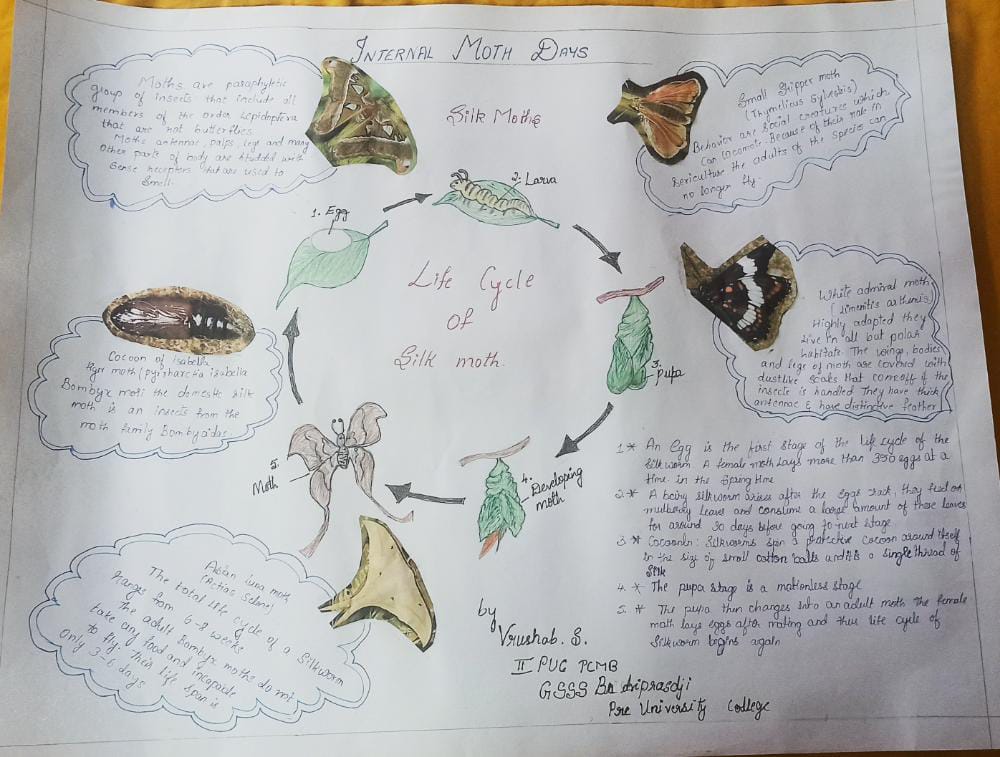 INTERNAL MOTH DAYS
Moths are paraphyletic
group of insects that include all
members of the order Lepidoptera
that are not butterflies.
Moths antennae, palps, legs and many
Other parts of body are studded with
Sense receptors that are used to
Smell.
Silk Moths
Small Skipper moth
(Thymelicus Sylvesbis)
Behavior are Social creatures which
can locomote. Because of their role in
Sericulture the adults of the species can
no longer fly.
1. Egg
2. Larva
3. Pupa
4. Developing
moth
5.
Moth
Life Cycle
Of
Silk moth.
Cocoon of Isabella
tiger moth (pyrrharctia isabella
Bombyx mori the domestic silk
moth is an insects from the
moth family Bombycidae
White admiral moth
(Limenitis arthemis)
Highly adapted they
live in all but polar
habitate. The wings, bodies
and legs of moth are covered with
dustlike scales that come off if the
insects is handled They have thick
antennae & have distinctive feather
1* An Egg is the first stage of the life cycle of the
Silkworm. A female moth lays more than 350 eggs at a
time in the Spring time
2* A baby silkworm arises after the eggs crack, they feed on
mulberry leaves and consume a large amount of these leaves
for around 30 days before going to next stage
3* Cocooln: Silkworms spin a protective cocoon around itself
in the size of small cotton balls and it is a single thread of
Silk
4* The pupa stage is a mationless stage
5* The pupa then changes into an adult moth the female
moth lays eggs after mating and thus life cycle of
Silkworm begins again
Asian luna moth
(Actias Selene)
The total life cycle of a Silkworm
ranges from 6-8 weeks
the adult Bombyx moths do not
take any food and incapable
to fly. their life span is
Only 3-6 days
by
Vrushab. S.
II PUC PCMB
GSSS Badriprasdji
Pre University College